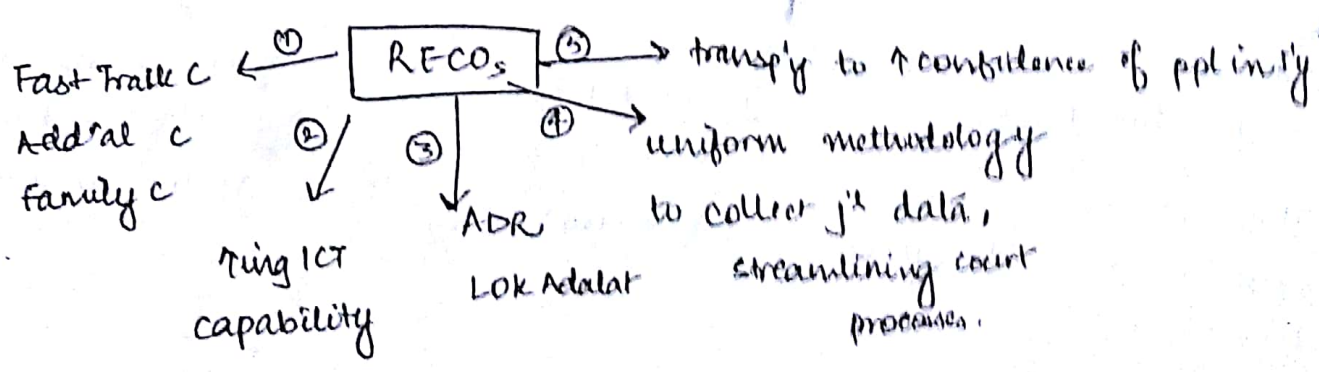 RECOs
①
Fast Track C
Addnal C
Family C
②
↑ing ICT
capability
③
ADR
Lok Adalat
④
uniform methodology
to collect j'l data,
streamlining court
processes.
⑤
transp'y to ↑ confidence of ppl in j'y